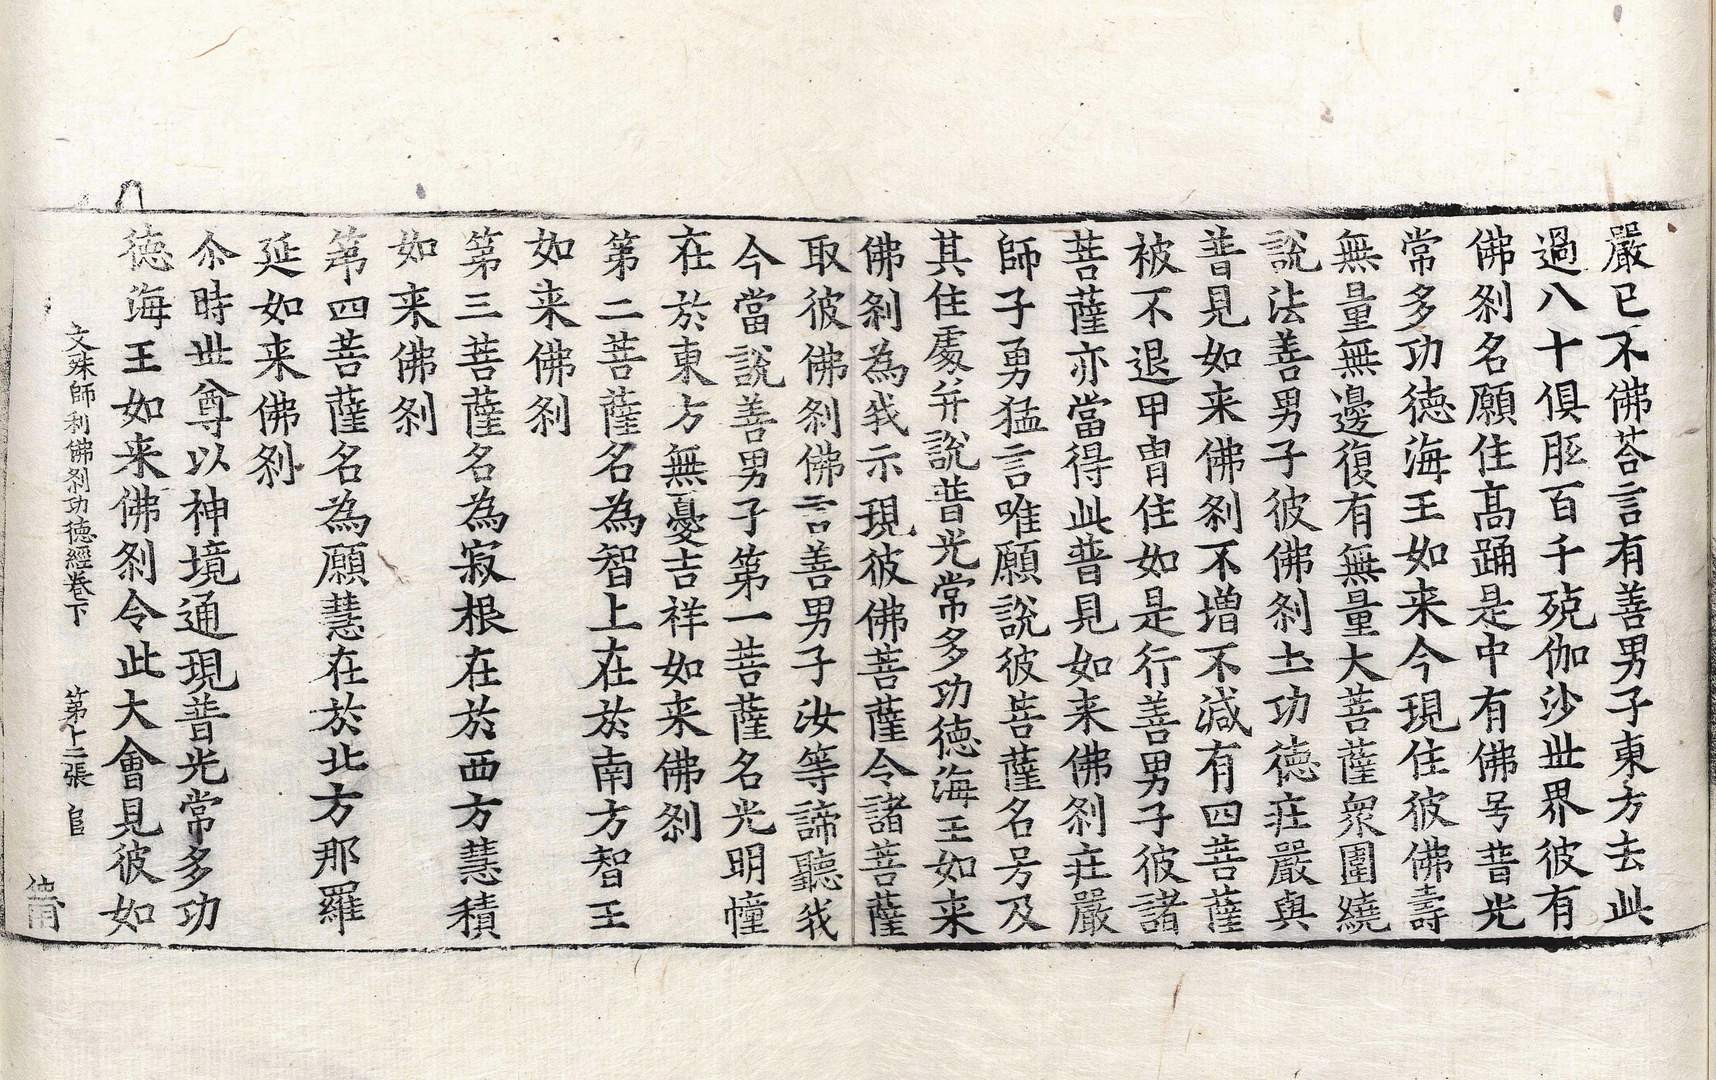 嚴已不佛荅言有善男子東方去此
過八十俱胝百千殑伽沙世界彼有
佛刹名願住髙踊是中有佛号普光
常多功徳海王如来今現住彼佛壽
無量無邊復有無量大菩薩衆圍繞
說法善男子彼佛刹土功徳莊嚴與
普見如来佛刹不增不減有四菩薩
被不退甲冑住如是行善男子彼諸
菩薩亦當得此普見如来佛刹莊嚴
師子勇猛言唯願說彼菩薩名号及
其住處并說普光常多功徳海王如来
佛刹為我示現彼佛菩薩令諸菩薩
取彼佛刹佛言善男子汝等諦聽我
今當說善男子第一菩薩名光明幢
在於東方無憂吉祥如来佛刹
第二菩薩名為智上在於南方智王
如来佛刹
第三菩薩名為寂根在於西方慧積
如来佛刹
第四菩薩名為願慧在於北方那羅
延如来佛刹
尒時世尊以神境通現普光常多功
徳海王如来佛刹令此大會見彼如
文殊師利佛刹功徳經卷下 第十二張 官